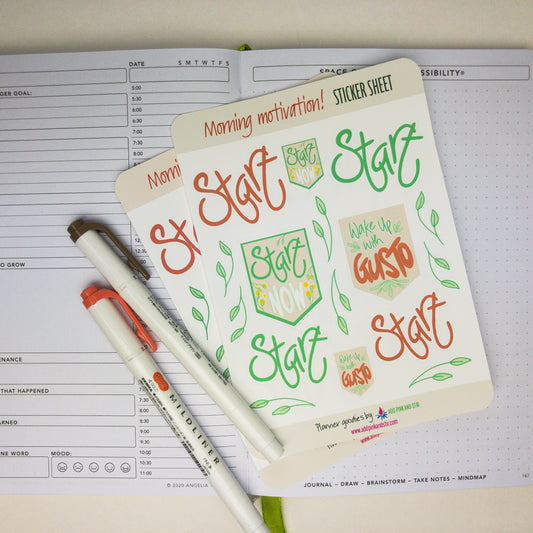 DATE
S M T W T F S
GER GOAL:
5:00
5:30
6:00
6:30
7:00
7:30
8:00
8:30
TO GROW
ENANCE
THAT HAPPENED
ARNED
NE WORD
MOOD:
10:30
11:00
© 2020 ANGELIA
SPACE
SSIBILITY®
Morning motivation! STICKER SHEET
Start
START
NOW
Start
Start
NOW
Wake Up
with
GUSTO
Start
Start
Wake Up
with
GUSTO
Planner goodies by ADD PINK AND STIR
www.addpinkandstir.com
Morn
Start
MILDLINER
JOURNAL – DRAW – BRAINSTORM – TAKE NOTES – MINDMAP
167